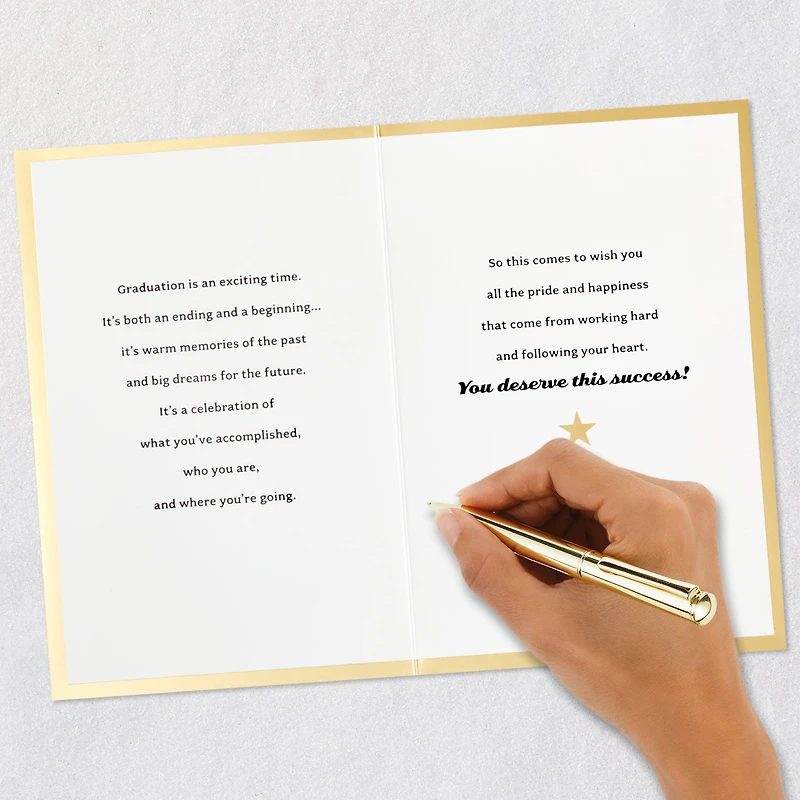 Graduation is an exciting time.
It's both an ending and a beginning...
it's warm memories of the past
and big dreams for the future.
It's a celebration of
what you've accomplished,
who you are,
and where you're going.
So this comes to wish you
all the pride and happiness
that come from working hard
and following your heart.
You deserve this success!